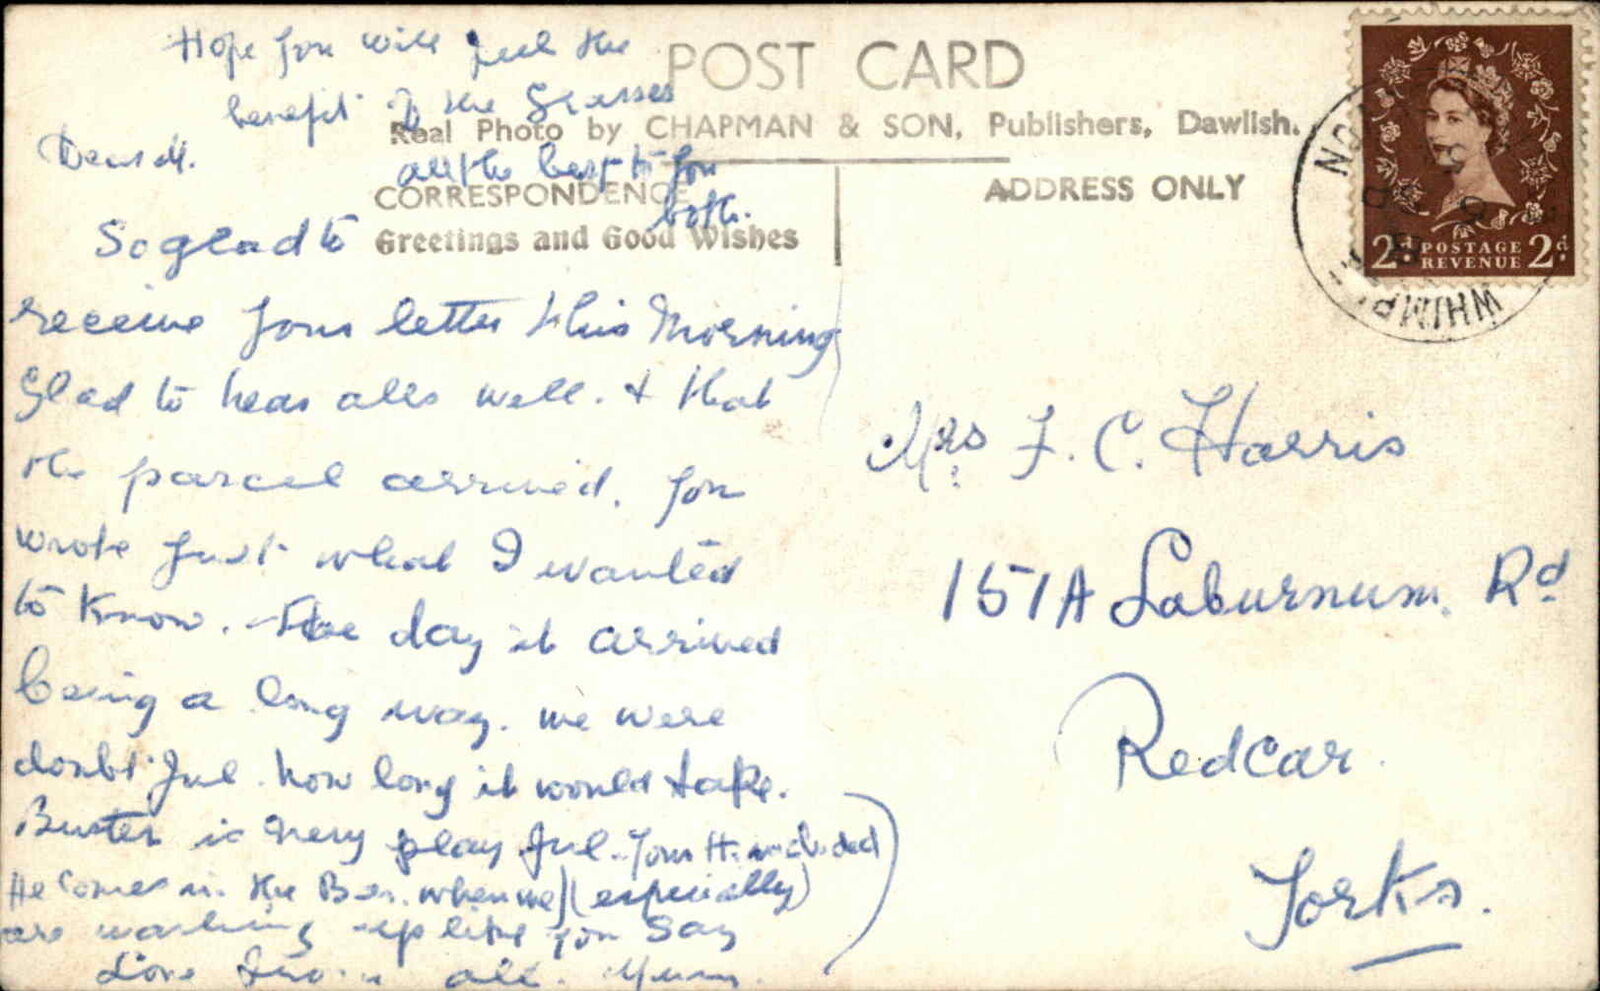 Hope you will feel the
benefit of the Glasses
all the best to you
both.
POST CARD
Real Photo by CHAPMAN & SON, Publishers, Dawlish.
CORRESPONDENCE
ADDRESS ONLY
Greetings and Good Wishes
2d POSTAGE REVENUE 2d
WHIMP
Dear M.
So glad to
receive your letter this Morning
Glad to hear alls well. & that
the parcel arrived. you
wrote just what I wanted
to know. The day it arrived
being a long way. we were
doubtful. how long it would take.
Buster is very playful. Tom H. included
He comes in the Bar. when we (especially)
are washing up like you say
Love from all. Mum.
Mrs F. C. Harris
151A Laburnum Rd
Redcar.
Yorks.